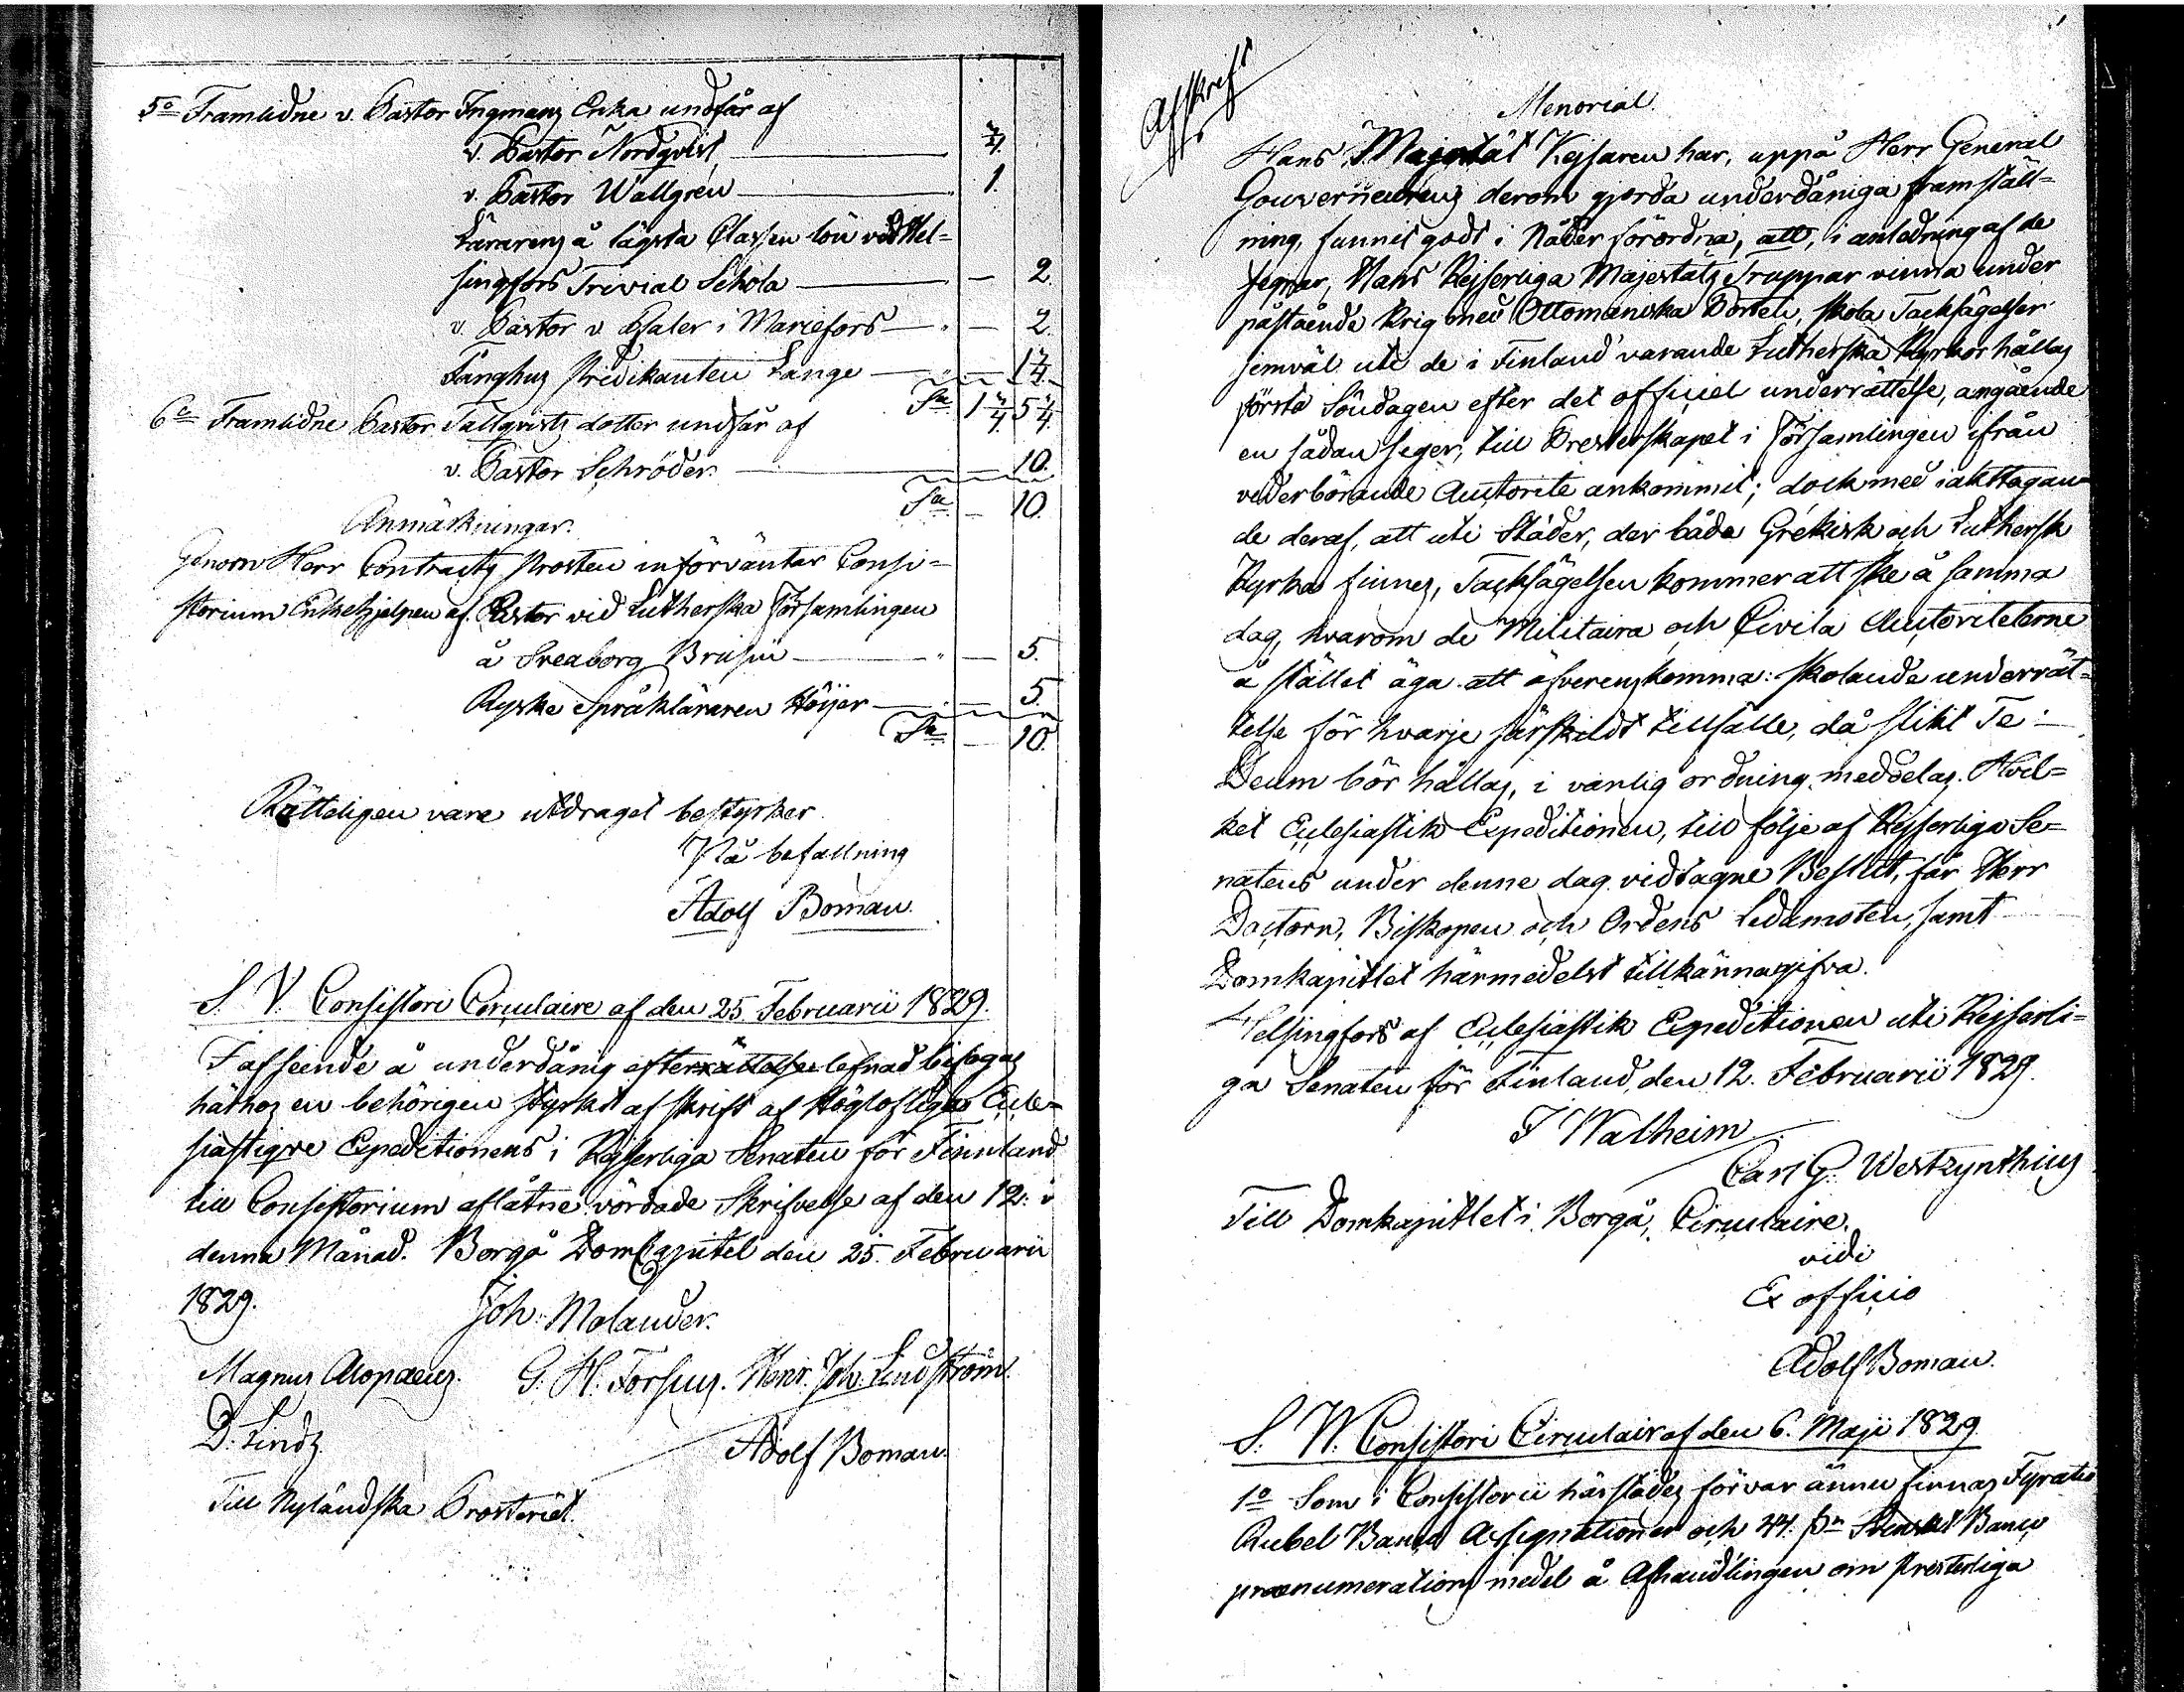 5o Framlidne v. Pastor Ingmans Enka undfår af
v. Pastor Nordqvist
v. Pastor Wallgren 1.
Lärarens å lägsta Classen lön vid Hel-
singfors Trivial Schola — 2.
v. Pastor v Pfaler i Mariefors — 2.
Fånghus Predikanten Lange
Sa
6o Framlidne Pastor Tallqvists dotter undfår af
v. Pastor Schröder. 10.
Sa — 10.
Anmärkningar.
Genom Herr Contracts Prosten införväntar Consi-
storium Enkehjelpen af Pastor vid Lutherska Församlingen
å Sveaborg Brusiin — 5.
Ryske Språkläraren Höijer — 5.
Sa — 10.
Rätteligen vara utdraget bestyrker
På befallning
Adolf Boman.
S. V. Consistori Circulaire af den 25 Februarii 1829.
I afseende å underdånig efterrättelse lefnad bifogas
härhos en behörigen styrkt afskrift af Högloflige Eccle-
siastique Expeditionens i Kejserliga Senaten för Finnland
till Consistorium aflåtne vördade Skrifvelse af den 12. i
denna Månad. Borgå DomCapitel den 25. Februarii
1829.
Joh: Molander.
Magnus Alopaeus. G. H. Forsius. Henr. Joh. Lindström.
D. Lindh
Adolf Boman.
Till Nyländska Prosteriet.
Afskrift
Memorial.
Hans Majestät Kejsaren har, uppå Herr General
Gouverneurens derom gjorda underdåniga framställ-
ning, funnit godt i Nåder förordna, att, i anledning af de
segrar, Hans Kejserliga Majestäts Truppar vinna under
påstående Krig med Ottomaniska Porten, skola Tacksägelser
jemväl uti de i Finland varande Lutherska Kyrkor hållas
första Söndagen efter det officiel underrättelse, angående
en sådan seger, till Presterskapet i Församlingen ifrån
vederbörande Autorite ankommit; dock med iakttagan-
de deraf, att uti Städer, der både Grekisk och Luthersk
Kyrka finnes, Tacksägelsen kommer att ske å samma
dag, hvarom de Militaira och Civila Autoriteterne
å stället äga att öfverenskomma: skolande underrät-
telse för hvarje särskildt tillfälle, då slikt Te
Deum bör hållas, i vanlig ordning meddelas. Hvil-
ket Ecclesiastik Expeditionen, till följe af Kejserliga Se-
natens under denne dag vidtagne Beslut, får Herr
Doctorn, Biskopen och Ordens Ledamoten, samt
Domkapitlet härmedelst tillkännagifva.
Helsingfors af Ecclesiastik Expeditionen uti Kejserli-
ga Senaten för Finland, den 12. Februarii 1829.
F Walheim
Carl G. Westzynthius
Till Domkapitlet i Borgå, Circulaire.
vidi
Ex officio
Adolf Boman.
S. V. Consistori Circulair af den 6. Maji 1829.
1o Som i Consistorii härstädes förvar ännu finnas Fyratio
Rubel Banco Assignationer och 44. Svenskt Banco
praenumerations medel å Afhandlingen om Presterliga